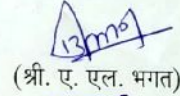 (श्री. ए. एल. भगत)